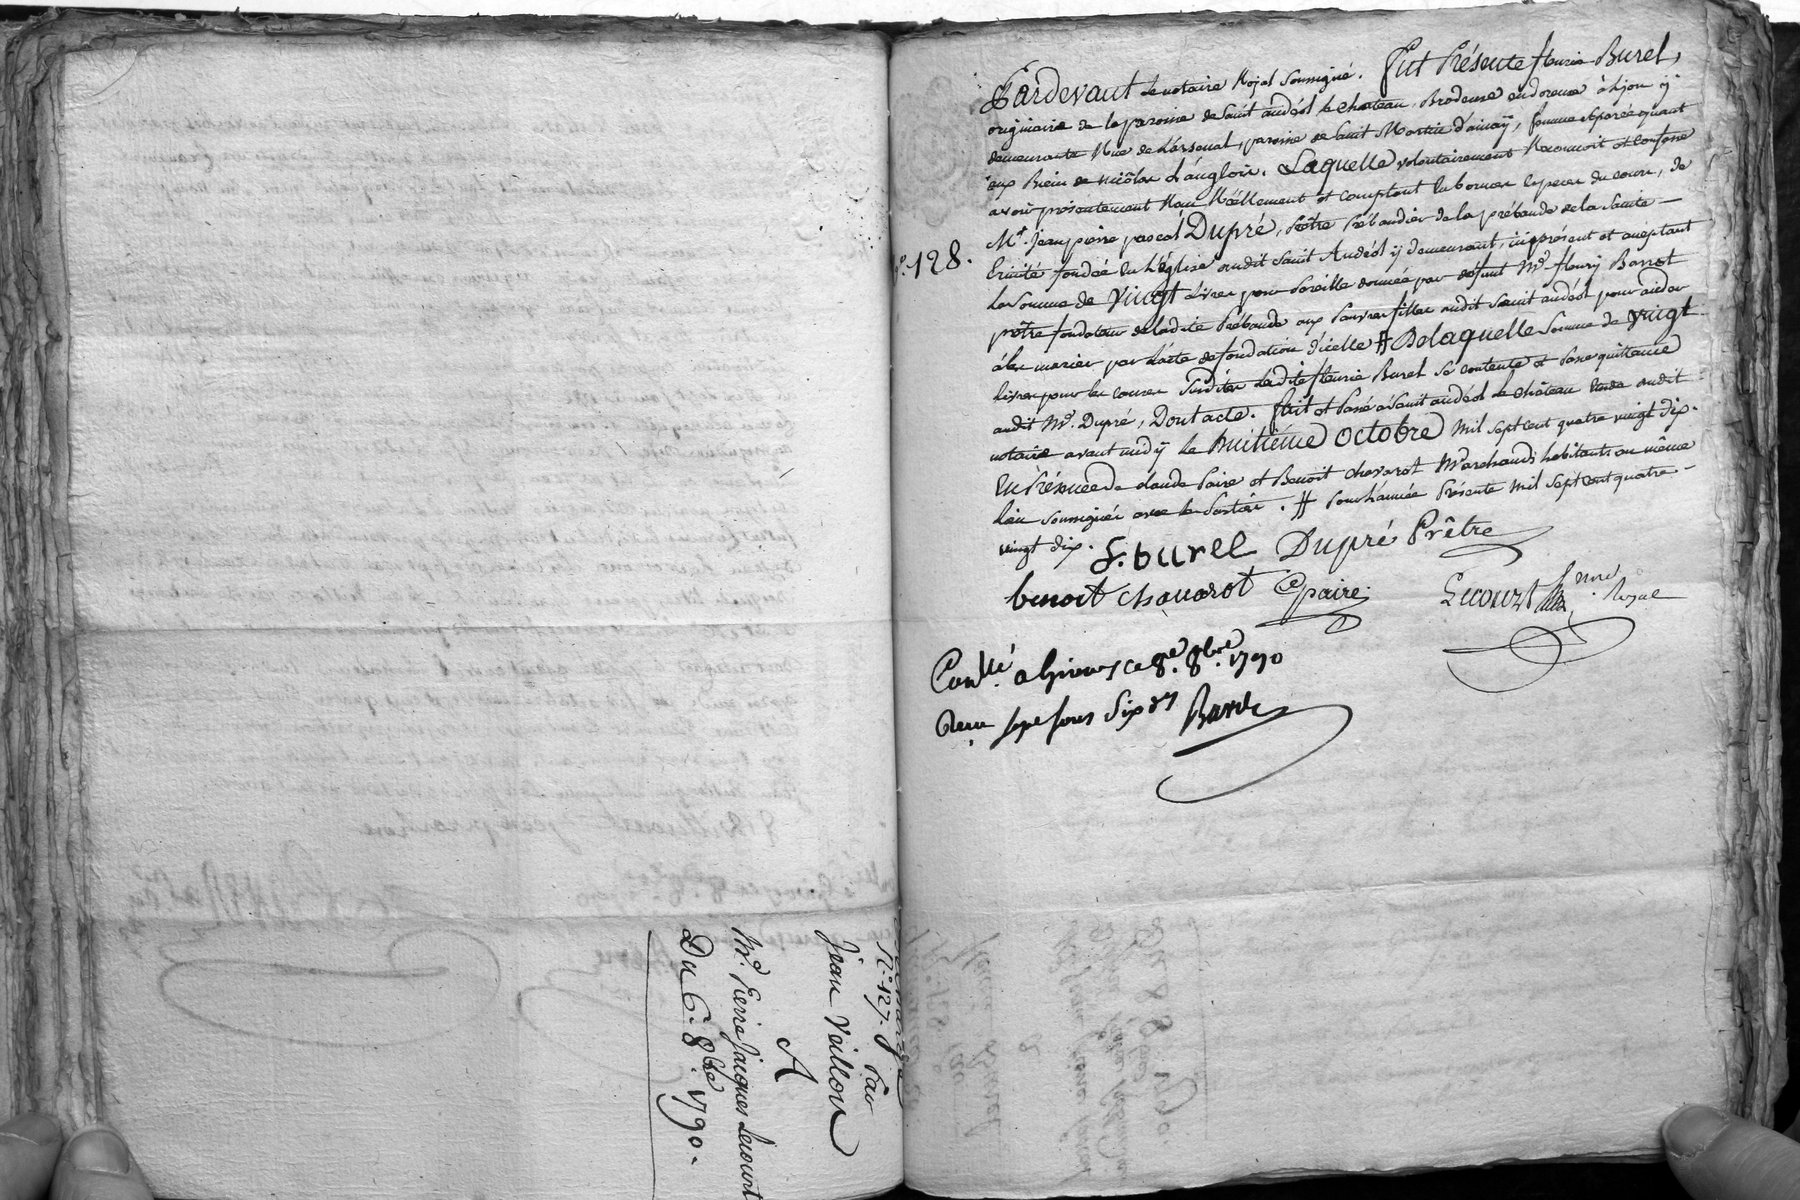 N.° 127. Par
Jean Veillon
A
Me. Pierre Jacques Lecourt
Du 6. 8bre 1790.
N.° 128.
Pardevant Le notaire Royal soussigné. Fut Présente fleurie Burel,
originaire de la paroisse de Saint andéol le chateau, Brodeuse en doreure à Lyon ÿ
demeurante Rue de L'arsenal, paroisse de Saint Martin d'ainaÿ, femme séparée quant
aux Biens de nicolas L'anglois. Laquelle volontairement Reconnoit et Confesse
avoir présentement Recu Réellement et comptant en bonnes Especes du cours, de
Mr. Jean pierre pascal Dupré, Prêtre Prébandier de la prébande de la Sainte –
Trinité fondée en L'église dudit Saint Andéol ÿ demeurant, icy présent et aceptant
La Somme de Vingt Livres pour Pareille donnée par défunt Mr. fleurÿ Barrot
prêtre fondateur de ladite Prébande aux Pauvres filles dudit Saint andéol pour aider
à les marier par L'acte de fondation d'icelle # De laquelle Somme de vingt
Livres pour les causes Susdites Ladite fleurie Burel Se contente et Passe quittance
audit Mr. Dupré, Dont acte. fait et Passé à Saint andéol le château Etude dudit
notaire avant midÿ Le Huitiéme Octobre Mil Sept cent quatre vingt dix.
En Présence de claude Paire et Benoit Chavarot Marchands habitants au même
Lieu Soussignés avec les Parties. # Pour L'année Présente Mil Sept cent quatre –
vingt dix.
f. burel Dupré Prêtre
benoit chavarot C paire Lecourt nre Royal
Conllé a Givors ce 8e. 8bre. 1790
Recu sept sous Six drs